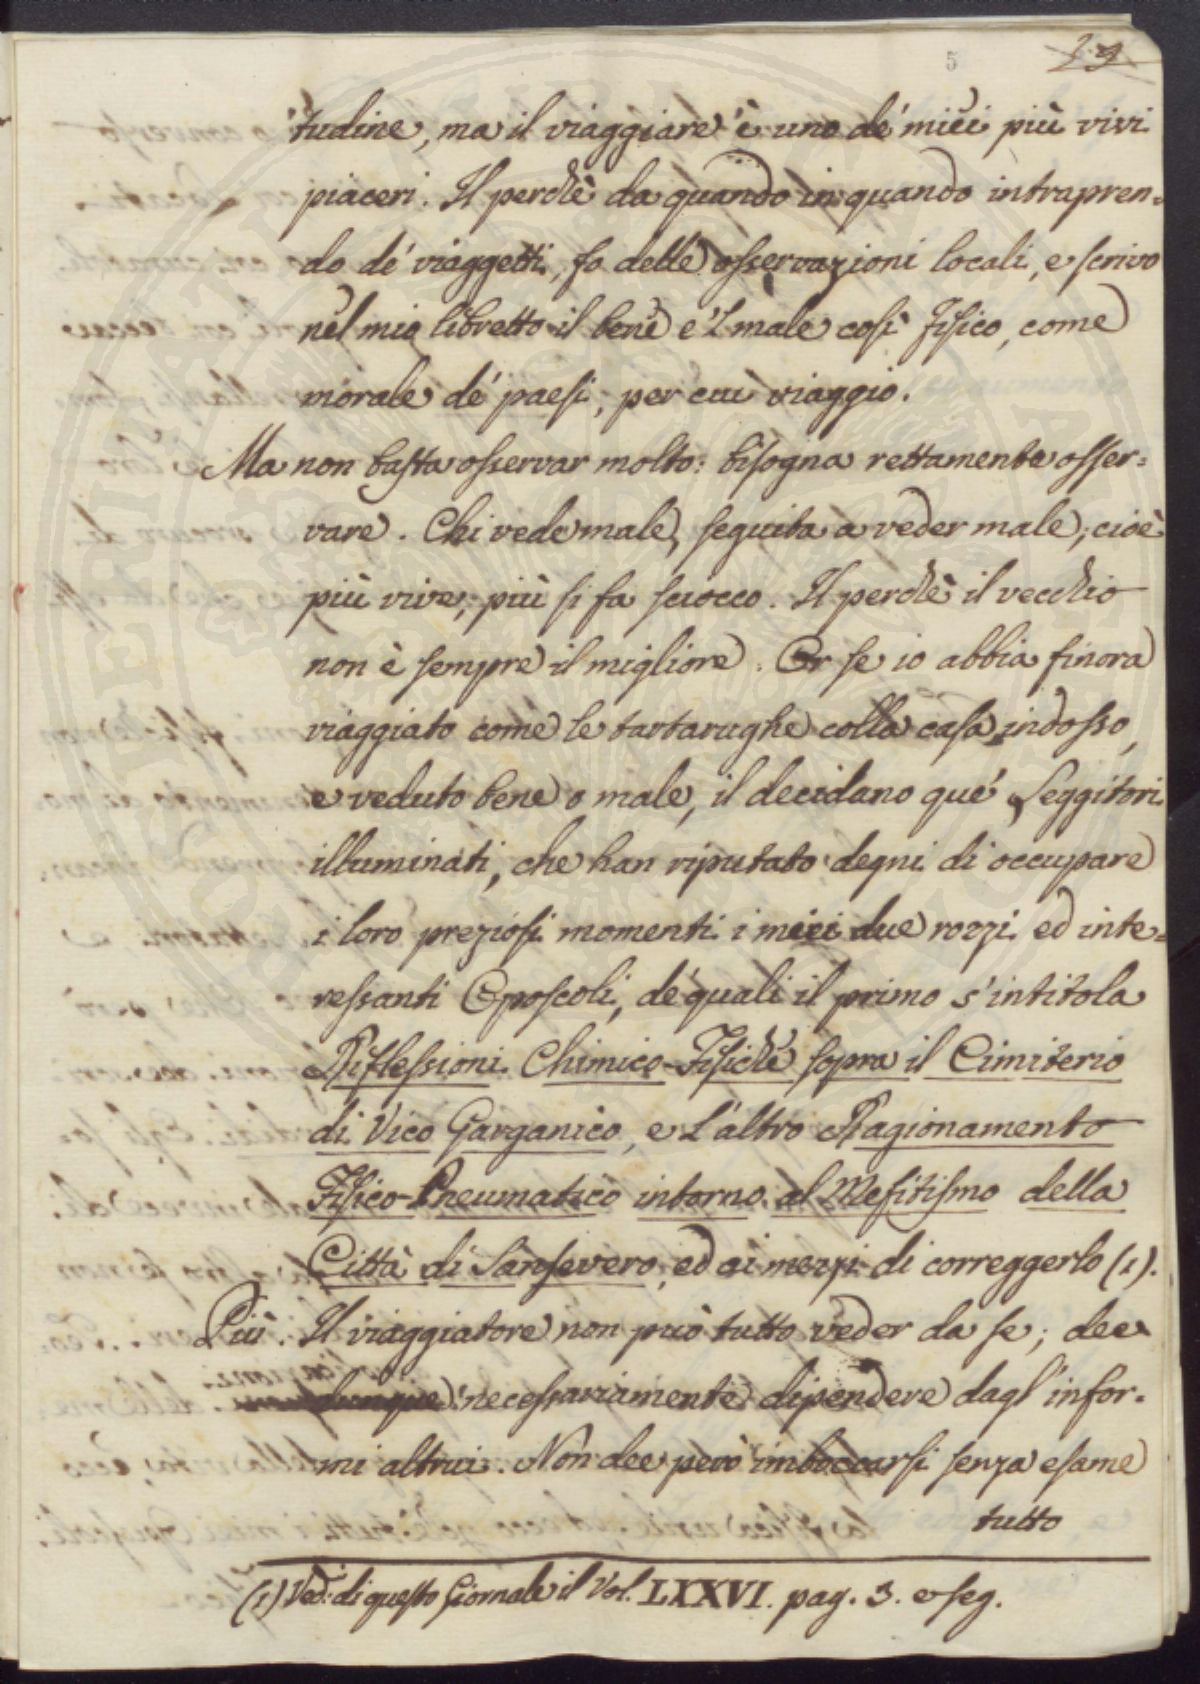 5
tudine, ma il viaggiare è uno de' miei più vivi
piaceri. Il perchè da quando in quando intrapren=
do de' viaggetti, fo delle osservazioni locali, e scrivo
nel mio libretto il bene e 'l male così fisico, come
morale de' paesi, per cui viaggio.
Ma non basta osservar molto: bisogna rettamente osser=
vare. Chi vede male, seguita a veder male; cioè
più vive, più si fa sciocco. Il perchè il vecchio
non è sempre il migliore. Or se io abbia finora
viaggiato come le tartarughe colla casa indosso,
e veduto bene o male, il decidano que' Leggitori
illuminati, che han riputato degni di occupare
i loro preziosi momenti i miei due rozzi ed inte=
ressanti Oposcoli, de' quali il primo s'intitola
Riflessioni Chimico-Fisiche sopra il Cimiterio
di Vico Garganico, e l'altro Ragionamento
Fisico-Pneumatico intorno al Mefitismo della
Città di Sansevero, ed ai mezzi di correggerlo (1).
Più. Il viaggiatore non può tutto veder da se; dee
dunque necessariamente dipendere dagl' infor=
mi altrui. Non dee però imboccarsi senza esame
tutto
(1) Ved. di questo Giornale il Vol. LXXVI. pag. 3. e seg.
POSTERITATI